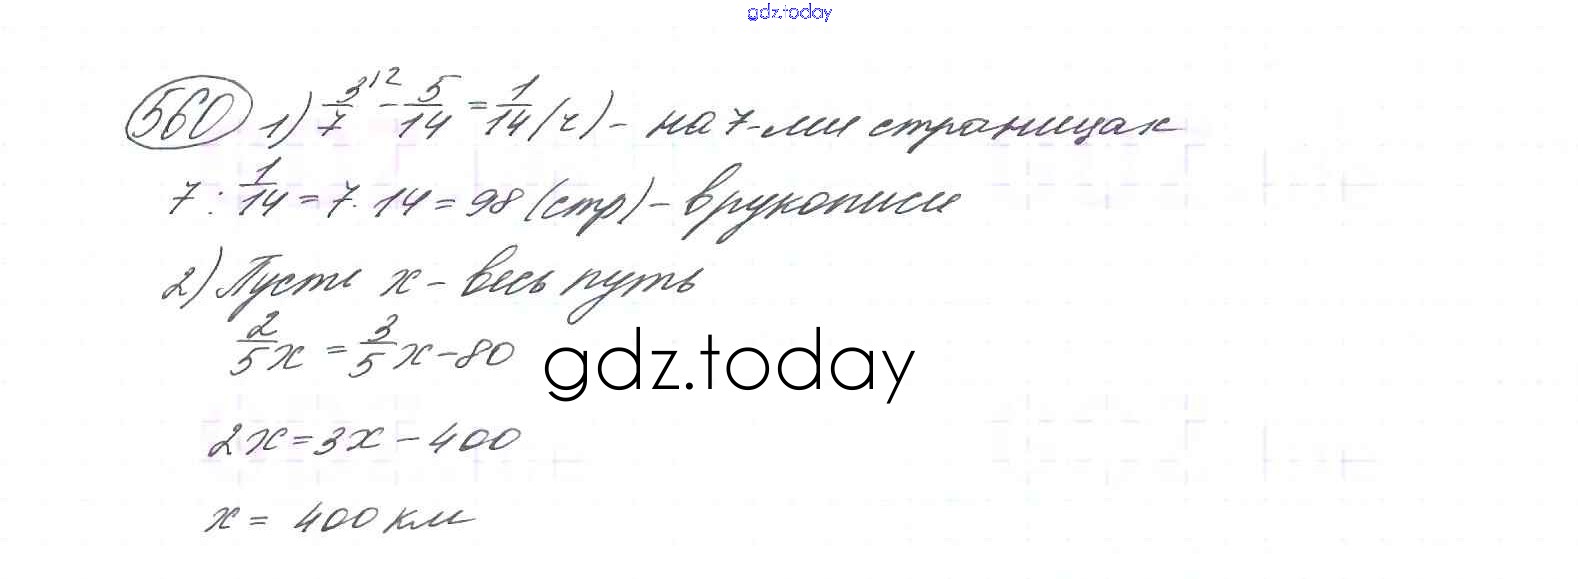 gdz.today
560 1) 3/7 ¹² - 5/14 = 1/14 (ч) - на 7-ми страницах
7 : 1/14 = 7 · 14 = 98 (стр) - в рукописи
2) Пусть x - весь путь
2/5 x = 3/5 x - 80
gdz.today
2x = 3x - 400
x = 400 км